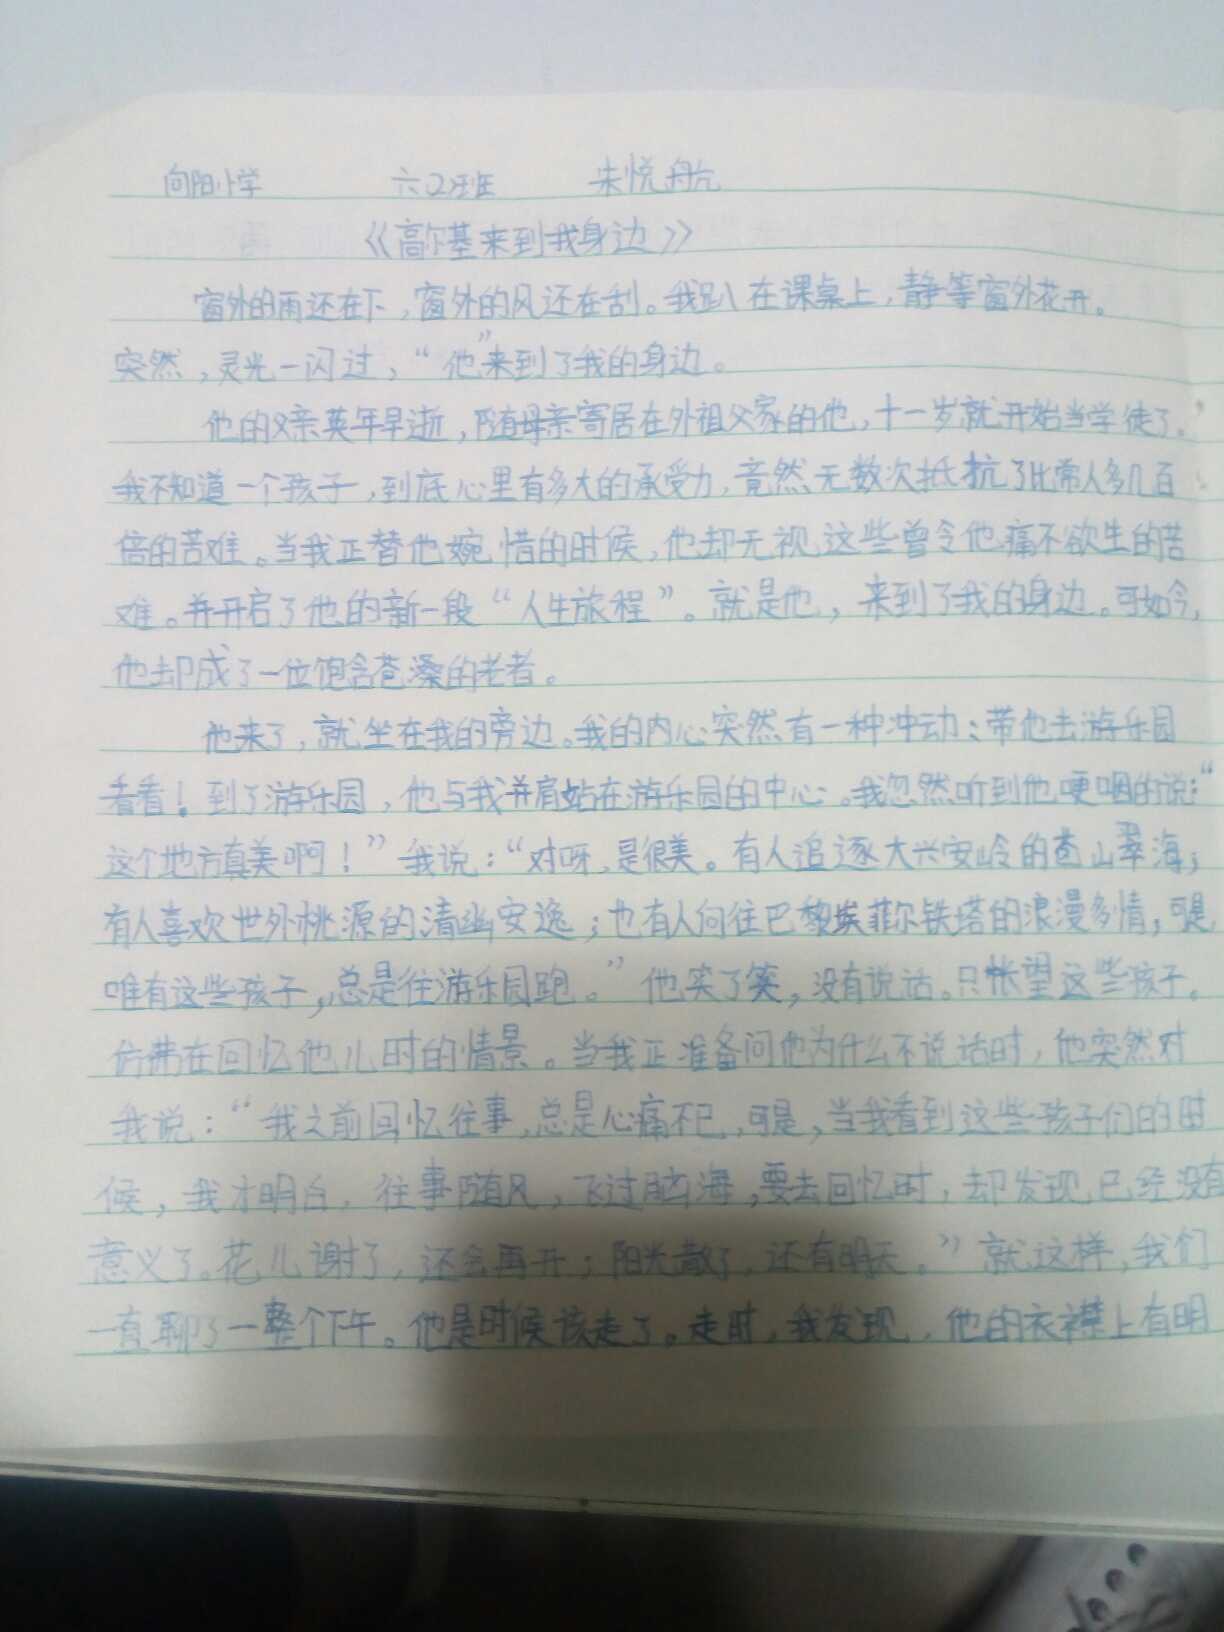 向阳小学 六(2)班 朱悦航
《高尔基来到我身边》
窗外的雨还在下，窗外的风还在刮。我趴在课桌上，静等窗外花开。
突然，灵光一闪过，“他”来到了我的身边。
他的父亲英年早逝，随母亲寄居在外祖父家的他，十一岁就开始当学徒了。
我不知道一个孩子，到底心里有多大的承受力，竟然无数次抵抗了比常人多几百
倍的苦难。当我正替他婉惜的时候，他却无视这些曾令他痛不欲生的苦
难。并开启了他的新一段“人生旅程”。就是他，来到了我的身边。可如今，
他却成了一位饱含苍桑的老者。
他来了，就坐在我的旁边。我的内心突然有一种冲动：带他去游乐园
看看！到了游乐园，他与我并肩站在游乐园的中心。我忽然听到他哽咽的说：“
这个地方真美啊！”我说：“对呀，是很美。有人追逐大兴安岭的苍山翠海；
有人喜欢世外桃源的清幽安逸；也有人向往巴黎埃菲尔铁塔的浪漫多情，可是，
唯有这些孩子，总是往游乐园跑。”他笑了笑，没有说话。只怅望这些孩子。
仿弗在回忆他儿时的情景。当我正准备问他为什么不说话时，他突然对
我说：“我之前回忆往事，总是心痛不已，可是，当我看到这些孩子们的时
候，我才明白，往事随风，飞过脑海，要去回忆时，却发现已经没有
意义了。花儿谢了，还会再开；阳光散了，还有明天。”就这样，我们
一直聊了一整个下午。他是时候该走了。走时，我发现，他的衣襟上有明